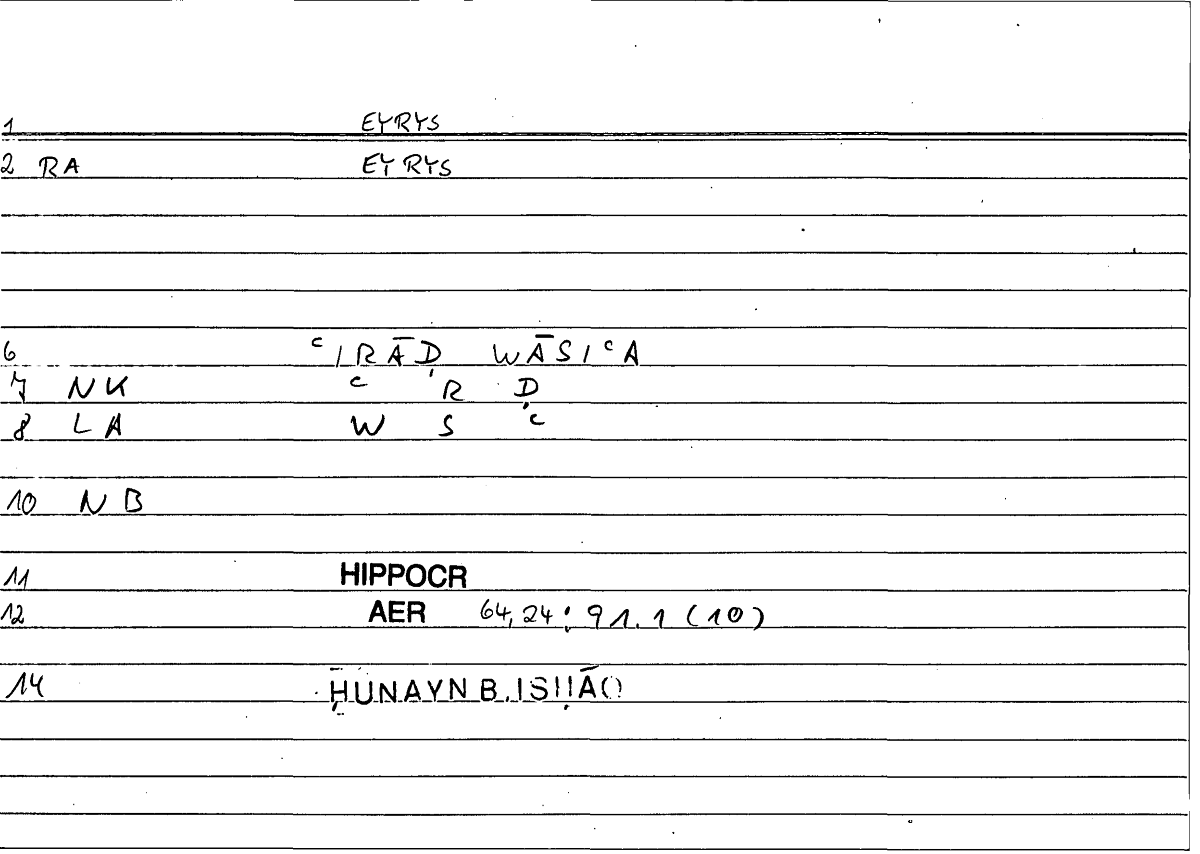 1 EYRYS
2 RA EYRYS
6 ᶜIRĀḌ WĀSIᶜA
7 NK ᶜ R Ḍ
8 LA W S ᶜ
10 NB
11 HIPPOCR
12 AER 64,24; 91.1 (10)
14 ḤUNAYN B. ISḤĀQ